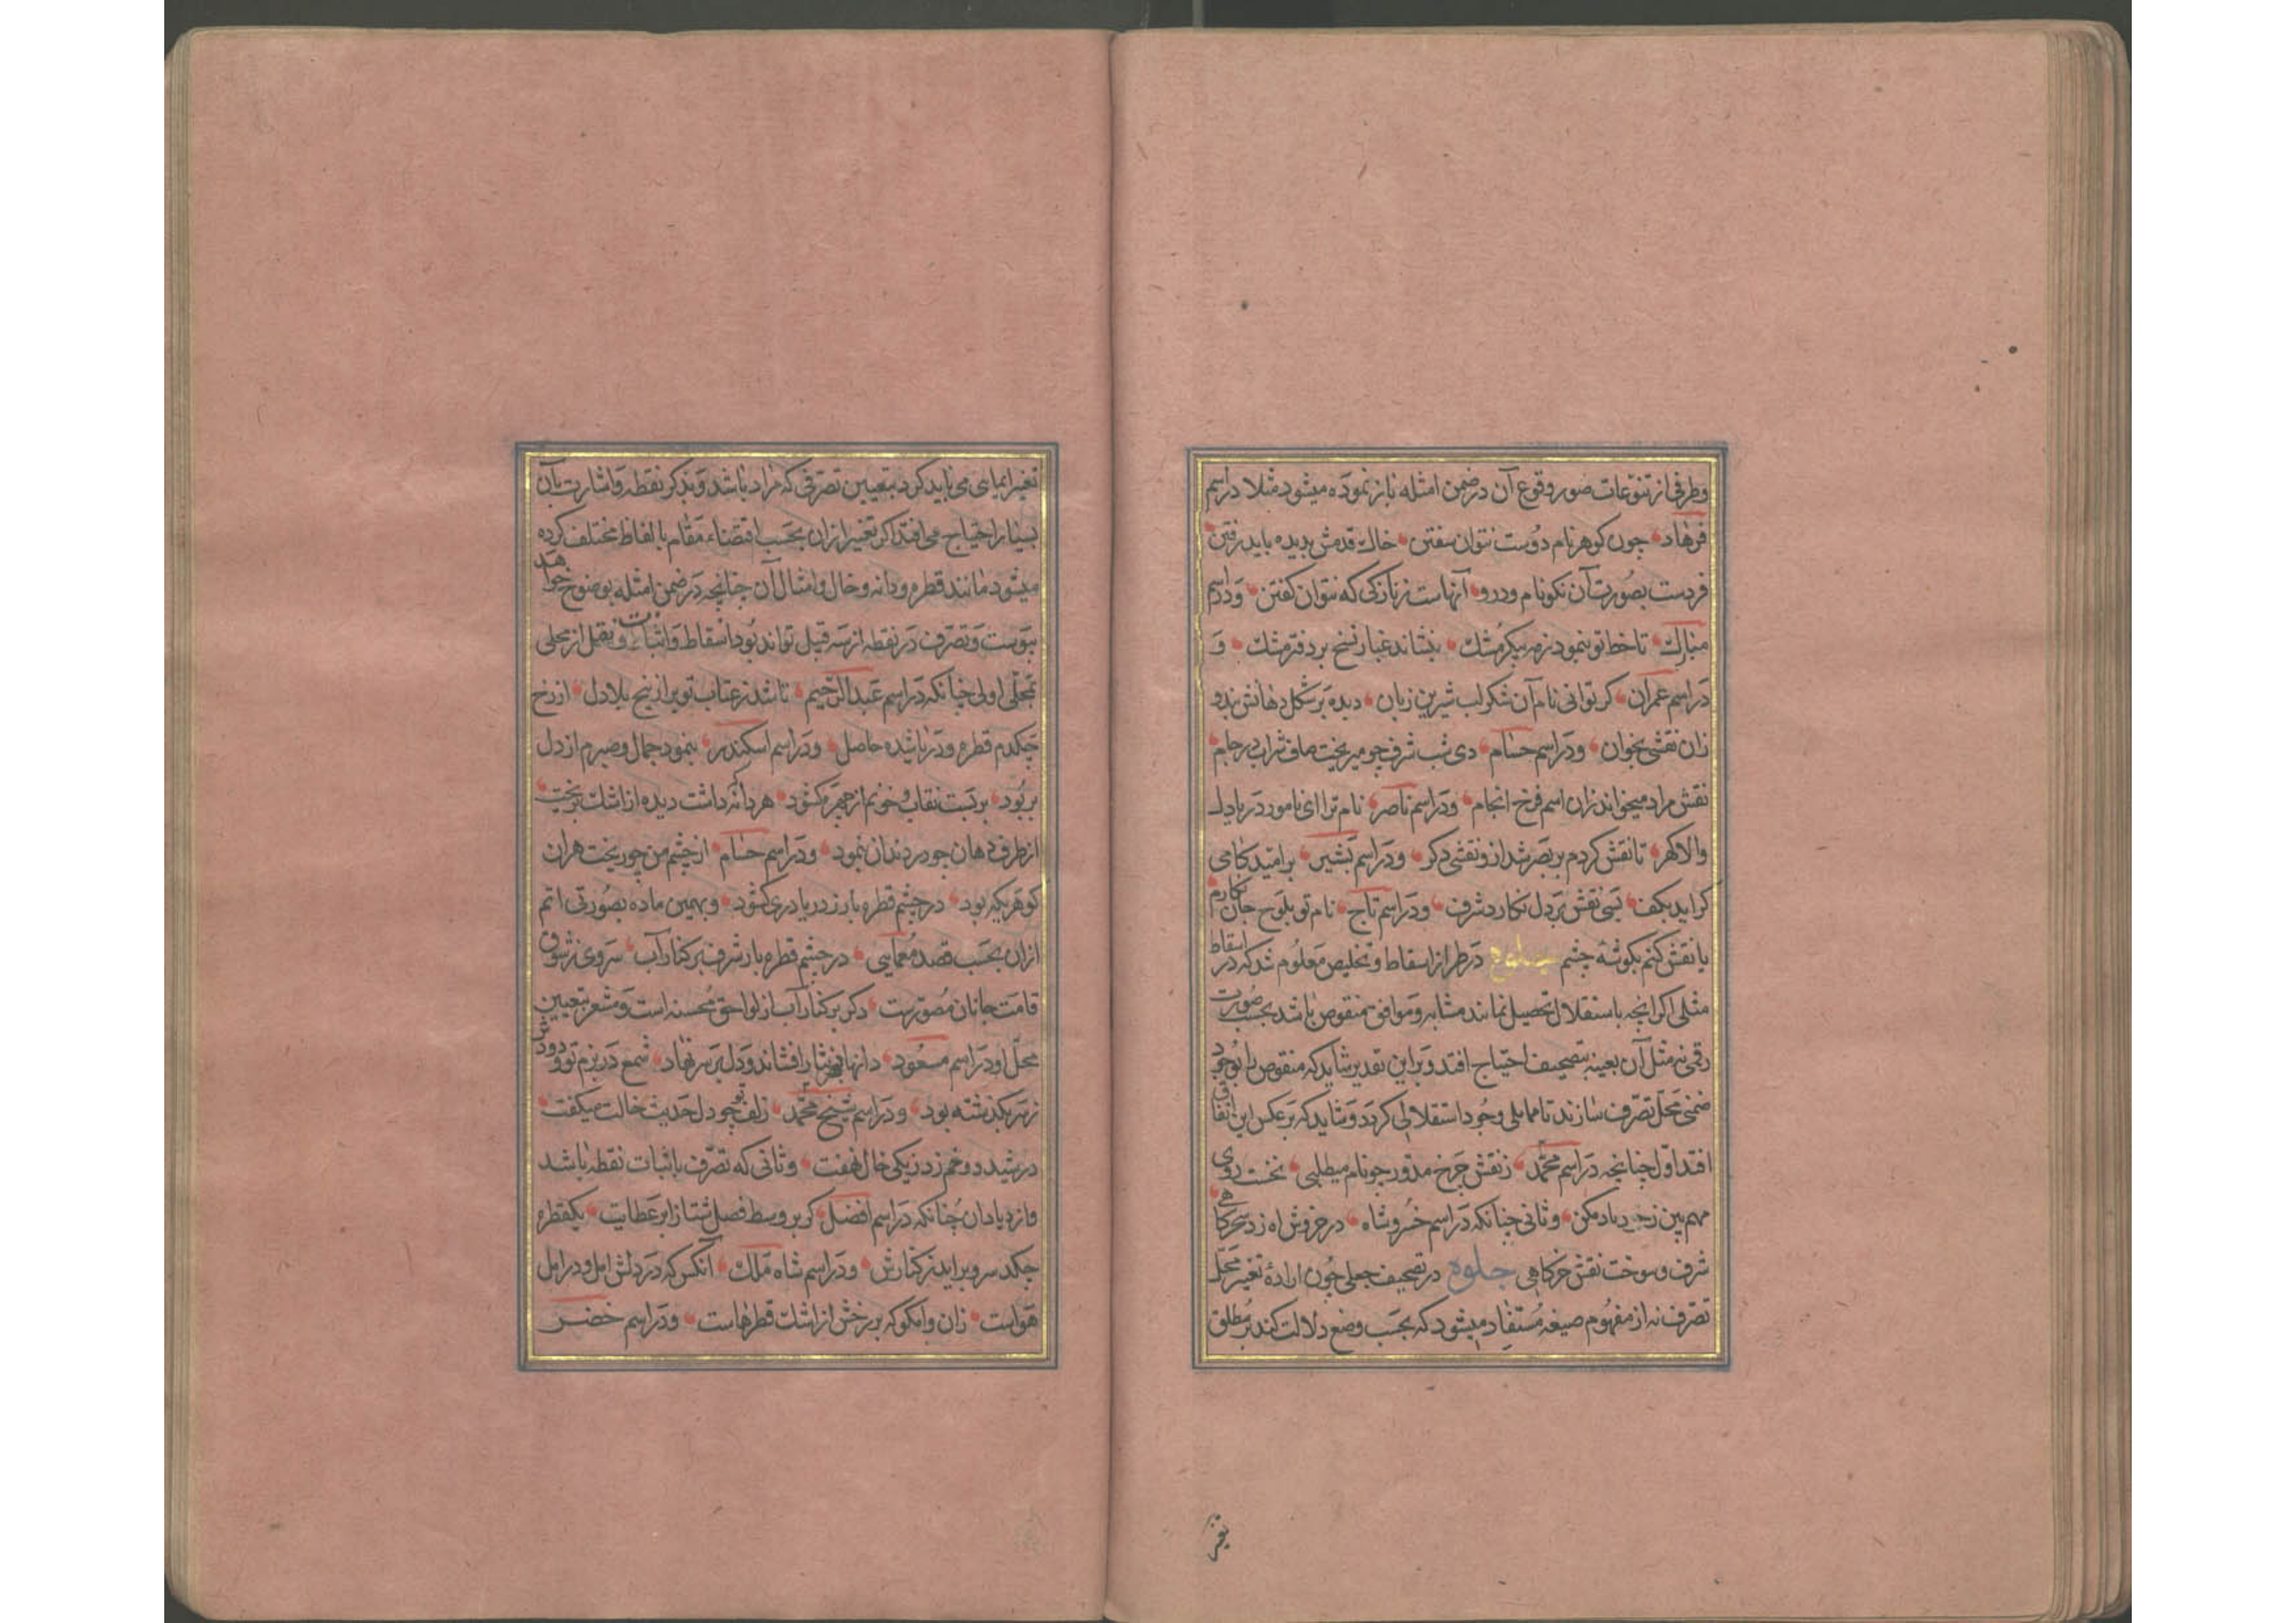 وطرفی از تنوّعات صور وقوع آن در ضمن امثله باز نموده میشود مثلا در اسم
فرهاد چون کوهر نام دوست نتوان سفتن خاک قدمش بدیده باید رفتن
فردست بصورت آن نکونام ودرو آنهاست زنازکی که نتوان کفتن ودر اسم
مبارک تا خط تو بنمود زمه پیکر مشک بنشاند غبار نسخ بر دفتر مشک و
در اسم عمران کر توانی نام آن شکر لب شیرین زبان دیده بر شکل دهانش بند و
زان نقشی بخوان ودر اسم حسام دی شب شرف چو میریخت صافی شراب در جام
نقش مراد میخواند زان اسم فرخ انجام ودر اسم ناصر نام ترا ای نامور دریادل
والا کهر تا نقش کردم بر بصر شد از و نقشی دکر ودر اسم بشیر بر امید کامی
کر اید بکف بسی نقش بر دل نکارد شرف ودر اسم تاج نام تو بلوح جان نکارم
یا نقش کنم بکوشهٔ چشم جلوه در طراز اسقاط و تخلیص معلوم شد که در اسقاط
مثلی اکر انچه باستقلال تحصیل نمایند مشابه وموافق منقوص باشد بحسب صورت
رقمی نه مثل آن بعینه بتصحیف احتیاج افتد وبر این تقدیر شاید که منقوص را بوجود
ضمنی محل تصرّف سازند تا مماثلی وجود استقلالی کردد وشاید که بر عکس این اتفاق
افتد اوّل چنانچه در اسم محمّد ز نقش چرخ مدوّر چو نام میطلبی نخست روی
مهم بین زجد یاد مکن وثانی چنانکه در اسم خسروشاه در خروش اه زد سحرکاهی
شرف و سوخت نقش خرکاهی جلوه در تصحیف جعلی چون ارادهٔ تغییر محل
تصرّف نه از مفهوم صیغه مستفاد میشود که بحسب وضع دلالت کند بر مطلق
تغیر
تغیر ایمایی می باید کرد بتعیین تصرّفی که مراد باشد وبذکر نقطه واشارت بآن
بسیار احتیاج می افتد اکر تعبیر ازان بحسب اقتضاء مقام بالفاظ مختلف کرده
میشود مانند قطره ودانه وخال وامثال آن چنانچه در ضمن امثله بوضوح خواهد
پیوست وتصرّف در نقطه از سه قبیل تواند بود اسقاط واثبات ونقل از محلی
بمحلّی اولی چنانکه در اسم عبدالرحیم تا شد زعتاب تو بر از رنج بلا دل از رخ
چکدم قطره ودریا شده حاصل ودر اسم اسکندر بنمود جمال وصبرم از دل
بربود بربست نقاب وخونم از چهره کشود هر دانه که داشت دیده از اشک بریخت
از طرف دهان چو در دندان نمود ودر اسم حسام از چشم من چو ریخت هران
کوهر یکه بود در چشم قطره بار ز دریا دری کشود وبهمین ماده بصورتی اتم
ازان بحسب قصد معمایی در چشم قطره بار شرف بر کنار آب سروی زشوق
قامت جانان مصوّرست ذکر بر کنار آب از لواحق محسنه است ومشعر بتعیین
محلّ او در اسم مسعود دانها بهر نثار افشاند ودل بر سر نهاد شمع در بزم تو و دودش
ز سر بکذشته بود ودر اسم شیخ محمّد زلف تو چو دل حدیث خالت میکفت
در هم شد و خم زد زیکی خال نهفت وثانی که تصرّف باثبات نقطه باشد
وازدیاد ان چنانکه در اسم افضل کر بر وسط فصل شتا ز ابر عطایت یکقطره
چکد سر و براید ز کنارش ودر اسم شاه ملک آنکس که در دلش امل ودر امل
هواست زان وامکو که بر رخش از اشک قطرهاست ودر اسم خضر